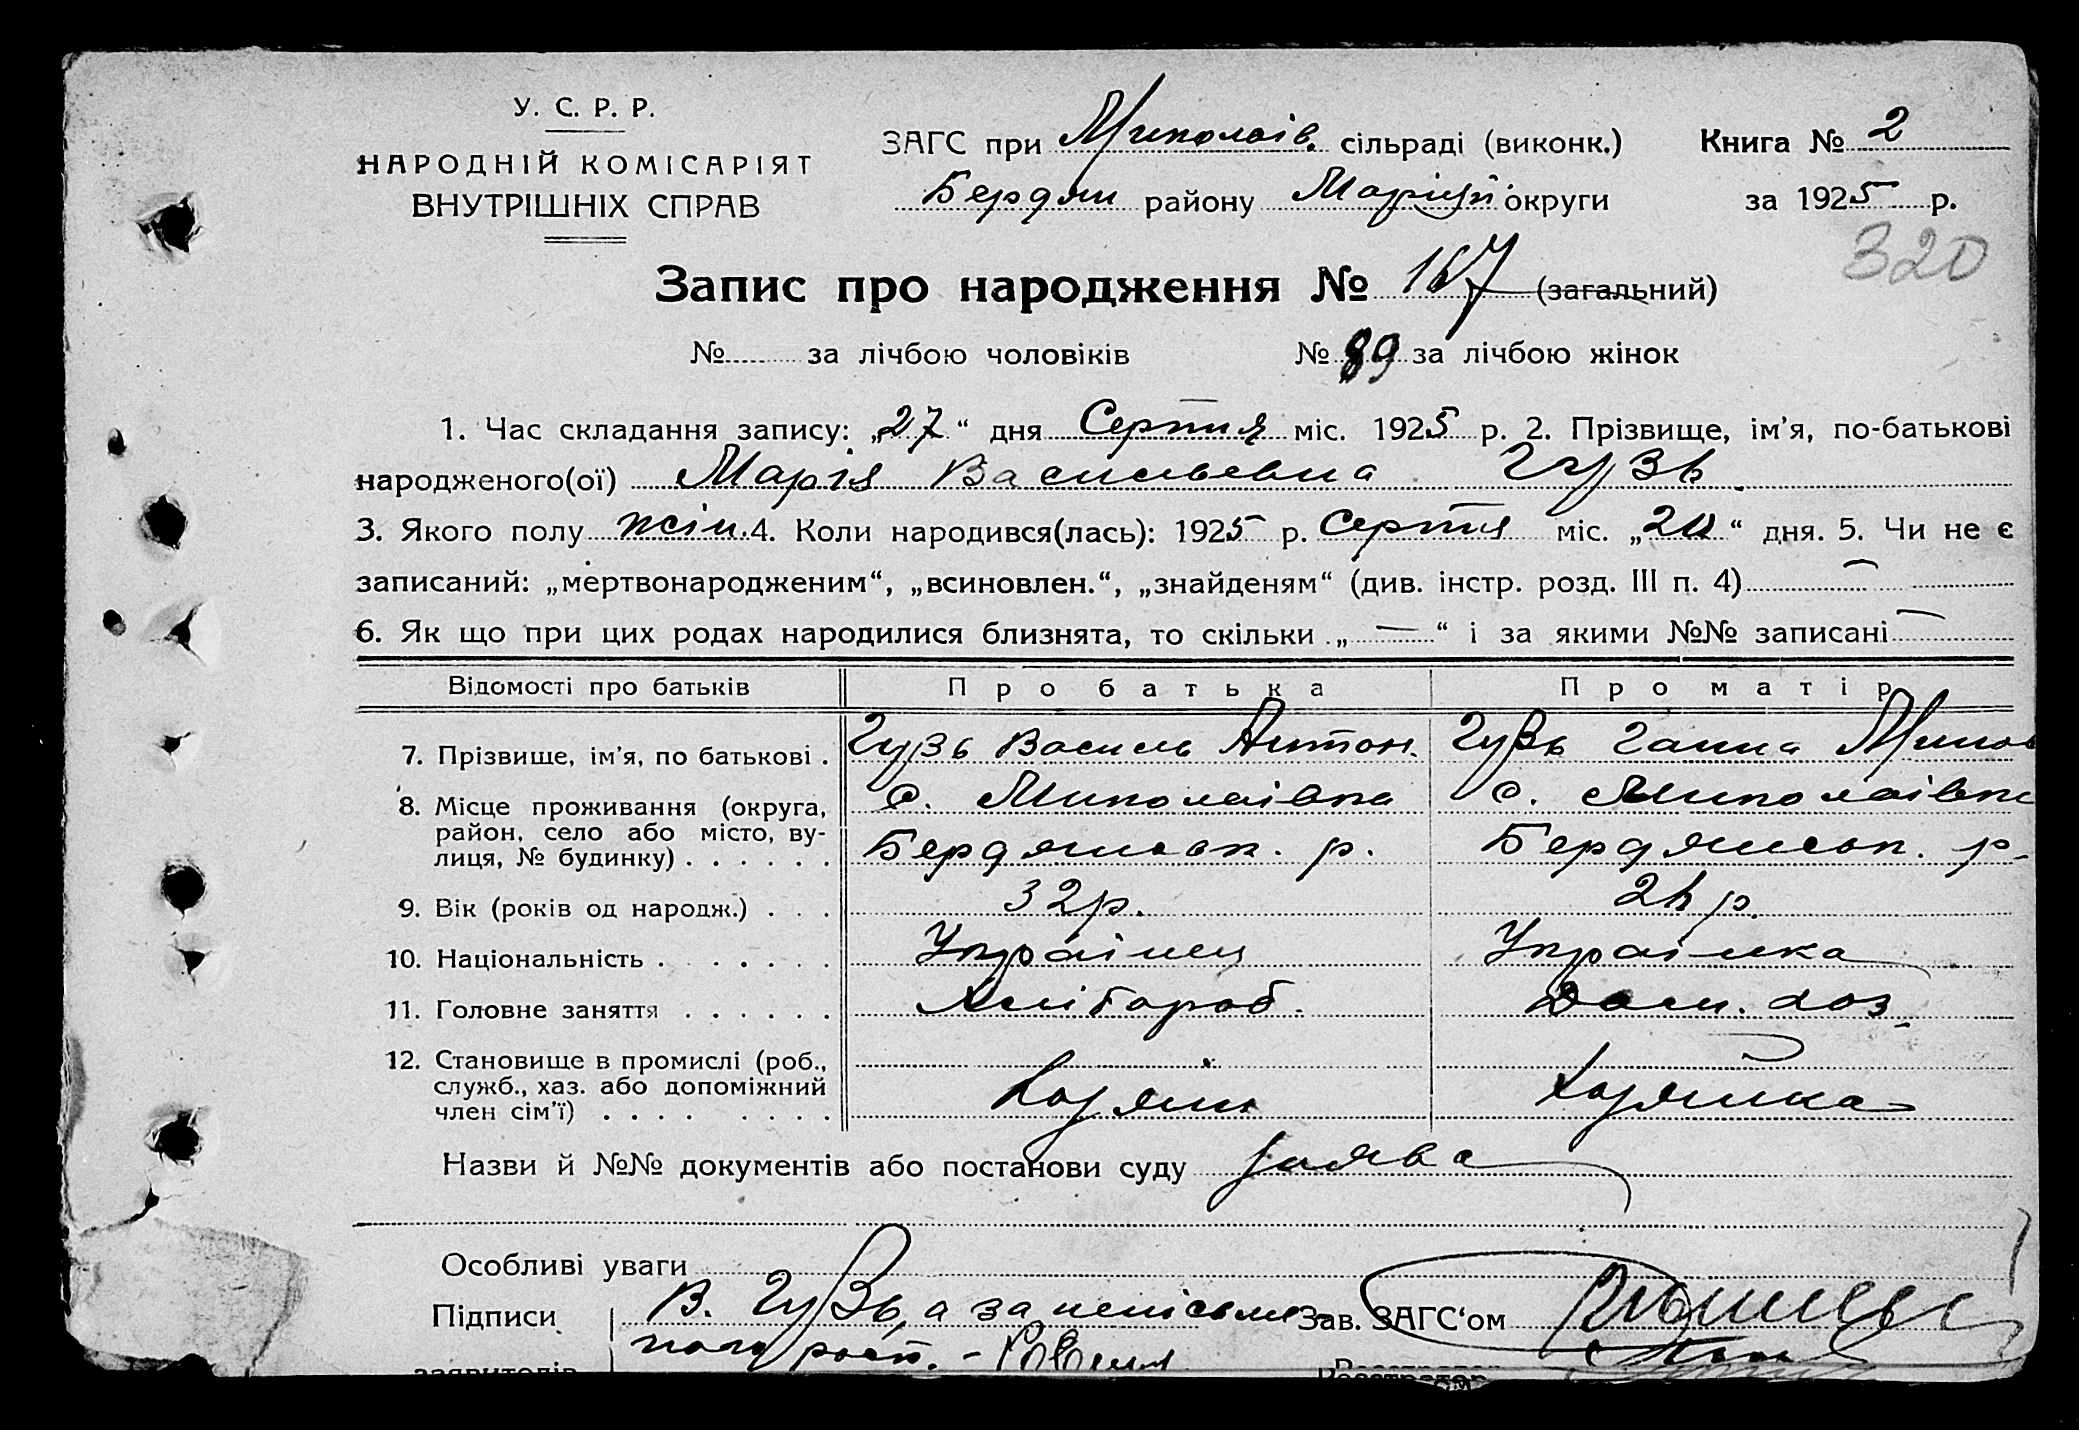 У. С. Р. Р.
НАРОДНІЙ КОМІСАРІЯТ
ВНУТРІШНІХ СПРАВ
ЗАГС при Миколаїв. сільраді (виконк.)
Бердян району Маріуп. округи
Книга № 2
за 1925 р.
320
Запис про народження № 167 (загальний)
№ за лічбою чоловіків № 89 за лічбою жінок
1. Час складання запису: „27“ дня Серпня міс. 1925 р. 2. Прізвище, ім'я, по-батькові
народженого(ої) Марія Васильевна Гузь
3. Якого полу жін. 4. Коли народився(лась): 1925 р. Серпня міс. „20“ дня. 5. Чи не є
записаний: „мертвонародженим“, „всиновлен.“, „знайденям“ (див. інстр. розд. III п. 4) —
6. Як що при цих родах народилися близнята, то скільки „—“ і за якими №№ записані —
Відомості про батьків Про батька Про матір
7. Прізвище, ім'я, по батькові . Гузь Василь Антон. Гузь Ганна
8. Місце проживання (округа, с. Миколаівка с. Миколаівк
район, село або місто, ву-
лиця, № будинку) . . . . . . Бердянськ. р. Бердянськ. р.
9. Вік (років од народж.) . . . 32 р. р.
10. Національність . . . . . . Українец Українка
11. Головне заняття . . . . . . Хлібороб. Дом. хоз.
12. Становище в промислі (роб.,
служб., хаз. або допоміжний
член сім'ї) . . . . . . . . Хазяїн Хазяйка
Назви й №№ документів або постанови суду Заява
Особливі уваги
Підписи В. Гузь, а за неписьмен Зав. ЗАГС'ом
заявителів
Реєстратор